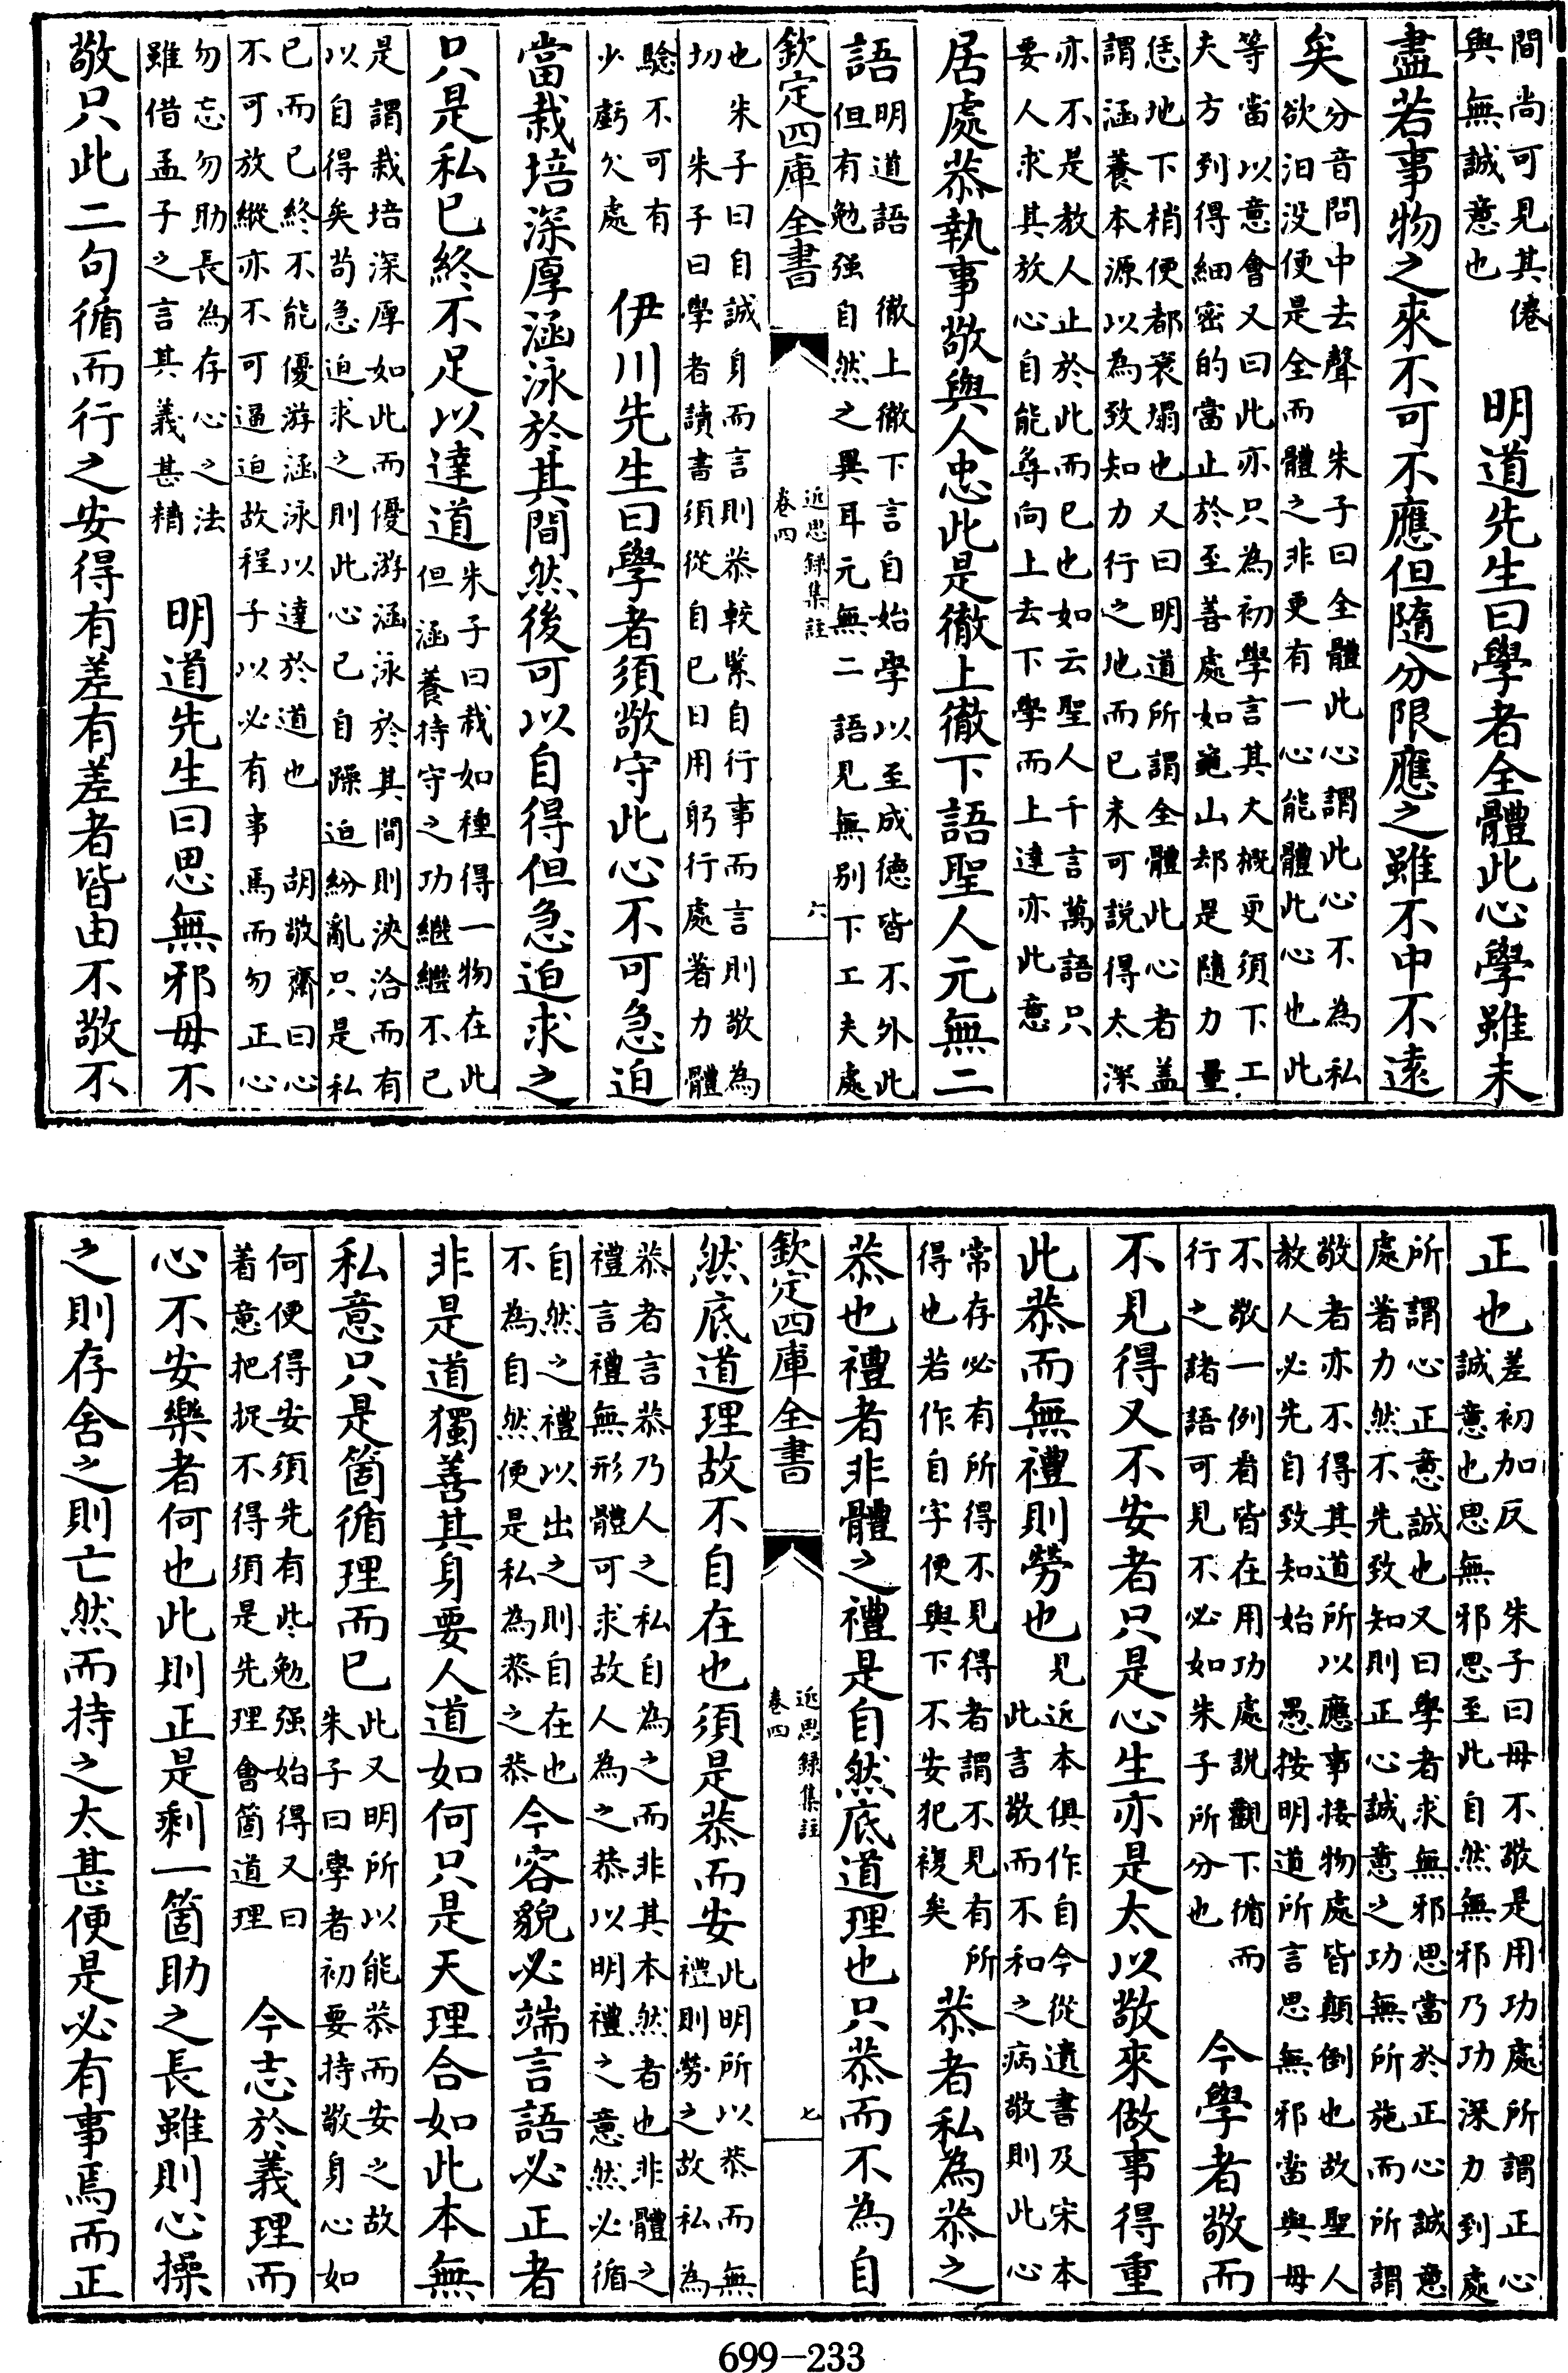 間尚可見其倦
與無誠意也
明道先生曰學者全體此心學雖未
盡若事物之來不可不應但隨分限應之雖不中不遠
矣
分音問中去聲 朱子曰全體此心謂此心不為私
欲汨没便是全而體之非更有一心能體此心也此
等當以意會又曰此亦只為初學言其大概更須下工
夫方到得細密的當止於至善處如龜山却是隨力量
恁地下梢便都衮塌也又曰明道所謂全體此心者盖
謂涵養本源以為致知力行之地而已未可説得太深
亦不是教人止於此而已也如云聖人千言萬語只
要人求其放心自能尋向上去下學而上達亦此意
居處恭執事敬與人忠此是徹上徹下語聖人元無二
語
明道語 徹上徹下言自始學以至成德皆不外此
但有勉强自然之異耳元無二語見無别下工夫處
欽定四庫全書
近思錄集註
卷四
六
也 朱子曰自誠身而言則恭較緊自行事而言則敬為
切 朱子曰學者讀書須從自己日用躬行處著力體
驗不可有
少虧欠處
伊川先生曰學者須敬守此心不可急迫
當栽培深厚涵泳於其間然後可以自得但急迫求之
只是私已終不足以達道
朱子曰栽如種得一物在此
但涵養持守之功繼繼不已
是謂栽培深厚如此而優游涵泳於其間則浹洽而有
以自得矣苟急迫求之則此心已自躁迫紛亂只是私
已而已終不能優游涵泳以達於道也 胡敬齋曰心
不可放縱亦不可逼迫故程子以必有事焉而勿正心
勿忘勿助長為存心之法
雖借孟子之言其義甚精
明道先生曰思無邪毋不
敬只此二句循而行之安得有差有差者皆由不敬不
正也
差初加反 朱子曰毋不敬是用功處所謂正心
誠意也思無邪思至此自然無邪乃功深力到處
所謂心正意誠也又曰學者求無邪思當於正心誠意
處著力然不先致知則正心誠意之功無所施而所謂
敬者亦不得其道所以應事接物處皆顛倒也故聖人
教人必先自致知始 愚按明道所言思無邪當與毋
不敬一例看皆在用功處說觀下循而
行之諸語可見不必如朱子所分也
今學者敬而
不見得又不安者只是心生亦是太以敬來做事得重
此恭而無禮則勞也
見近本俱作自今從遺書及宋本
此言敬而不和之病敬則此心
常存必有所得不見得者謂不見有所
得也若作自字便與下不安犯複矣
恭者私為恭之
恭也禮者非體之禮是自然底道理也只恭而不為自
欽定四庫全書
近思錄集註
卷四
七
然底道理故不自在也須是恭而安
此明所以恭而無
禮則勞之故私為
恭者言恭乃人之私自為之而非其本然者也非體之
禮言禮無形體可求故人為之恭以明禮之意然必循
自然之禮以出之則自在也
不為自然便是私為恭之恭
今容貌必端言語必正者
非是道獨善其身要人道如何只是天理合如此本無
私意只是箇循理而已
此又明所以能恭而安之故
朱子曰學者初要持敬身心如
何便得安須先有此勉强始得又曰
着意把捉不得須是先理會箇道理
今志於義理而
心不安樂者何也此則正是剩一箇助之長雖則心操
之則存舍之則亡然而持之太甚便是必有事焉而正
699-233